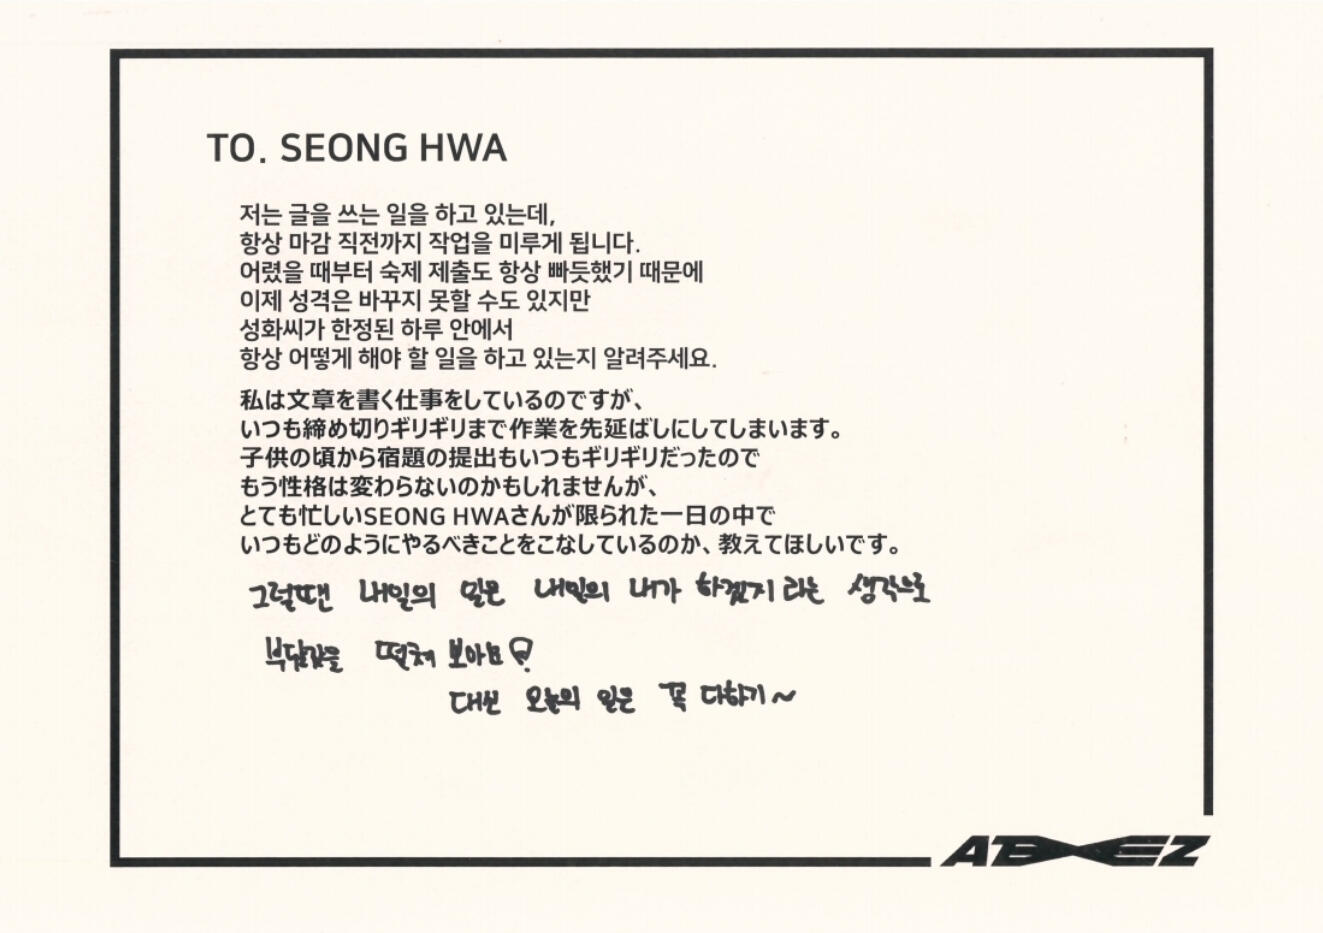 TO. SEONG HWA
저는 글을 쓰는 일을 하고 있는데,
항상 마감 직전까지 작업을 미루게 됩니다.
어렸을 때부터 숙제 제출도 항상 빠듯했기 때문에
이제 성격은 바꾸지 못할 수도 있지만
성화씨가 한정된 하루 안에서
항상 어떻게 해야 할 일을 하고 있는지 알려주세요.
私は文章を書く仕事をしているのですが、
いつも締め切りギリギリまで作業を先延ばしにしてしまいます。
子供の頃から宿題の提出もいつもギリギリだったので
もう性格は変わらないのかもしれませんが、
とても忙しいSEONG HWAさんが限られた一日の中で
いつもどのようにやるべきことをこなしているのか、教えてほしいです。
그럴땐 내일의 일은 내일의 내가 하겠지 라는 생각으로
부담감을 떨쳐 보아요!
대신 오늘의 일은 꼭 다하기~
ATEEZ